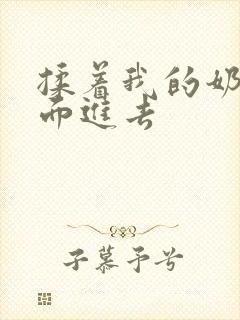 揉着我的奶
而进去
子慕予兮